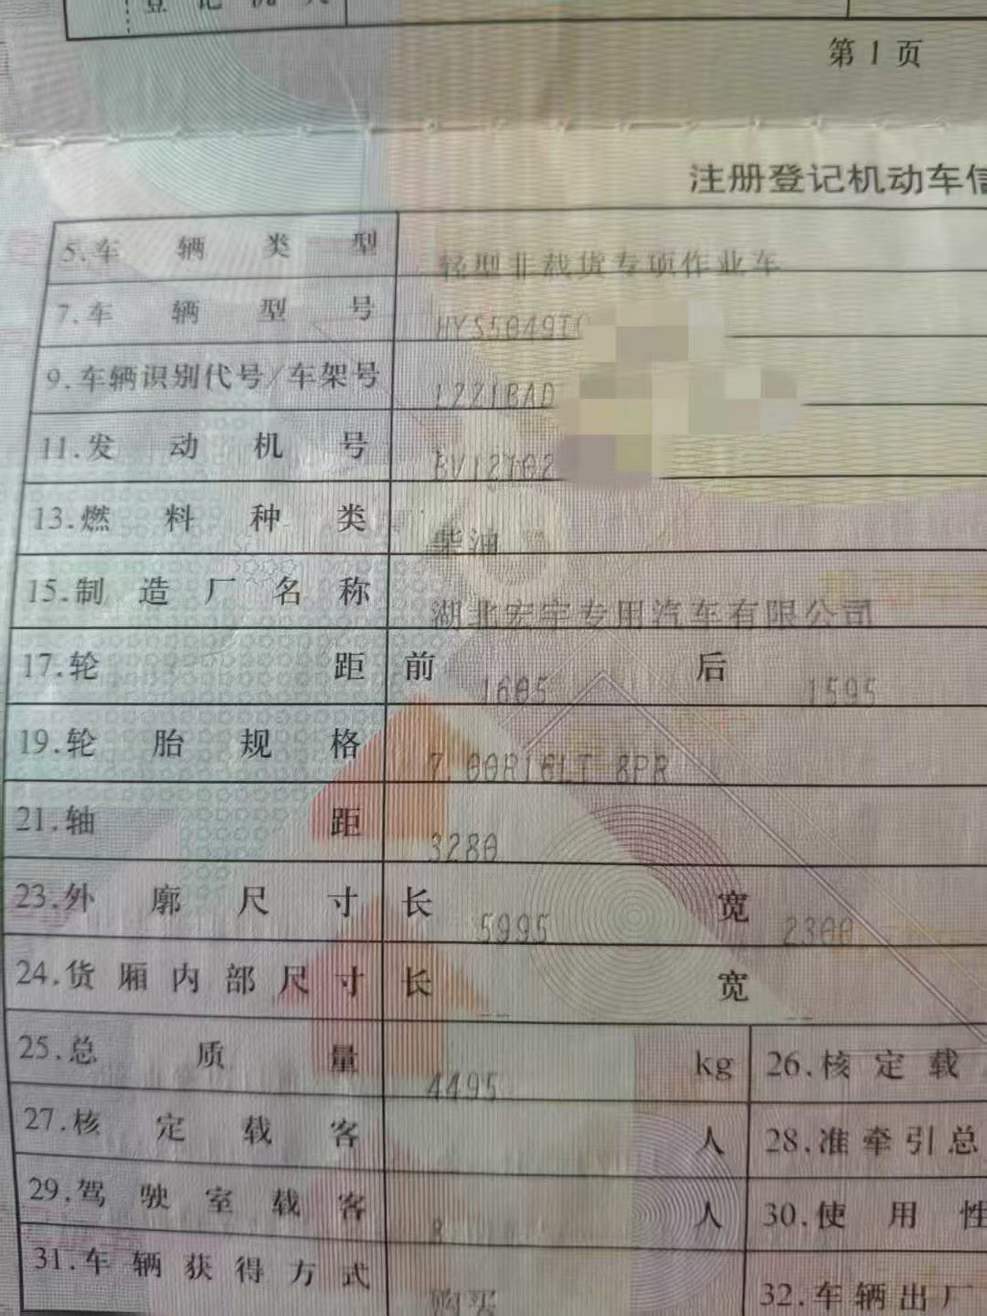 登 记 机 关
第 1 页
注册登记机动车信
5.车 辆 类 型 轻型非载货专项作业车
7.车 辆 型 号 HYS5049T
9.车辆识别代号/车架号 L221BAD
11.发 动 机 号
13.燃 料 种 类 柴油
15.制 造 厂 名 称 湖北宏宇专用汽车有限公司
17.轮 距 前 1605 后 1595
19.轮 胎 规 格 7.00R16LT 8PR
21.轴 距 3280
23.外 廓 尺 寸 长 5995 宽 2300
24.货 厢 内 部 尺 寸 长 -- 宽 --
25.总 质 量 4495 kg 26.核 定 载
27.核 定 载 客 人 28.准 牵 引 总
29.驾 驶 室 载 客 人 30.使 用 性
31.车 辆 获 得 方 式 购买 32.车 辆 出 厂